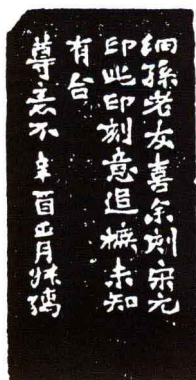 细孫老友喜余刻宋元
印此印刻意追橅未知
有台
尊意不辛酉正月妹㺃